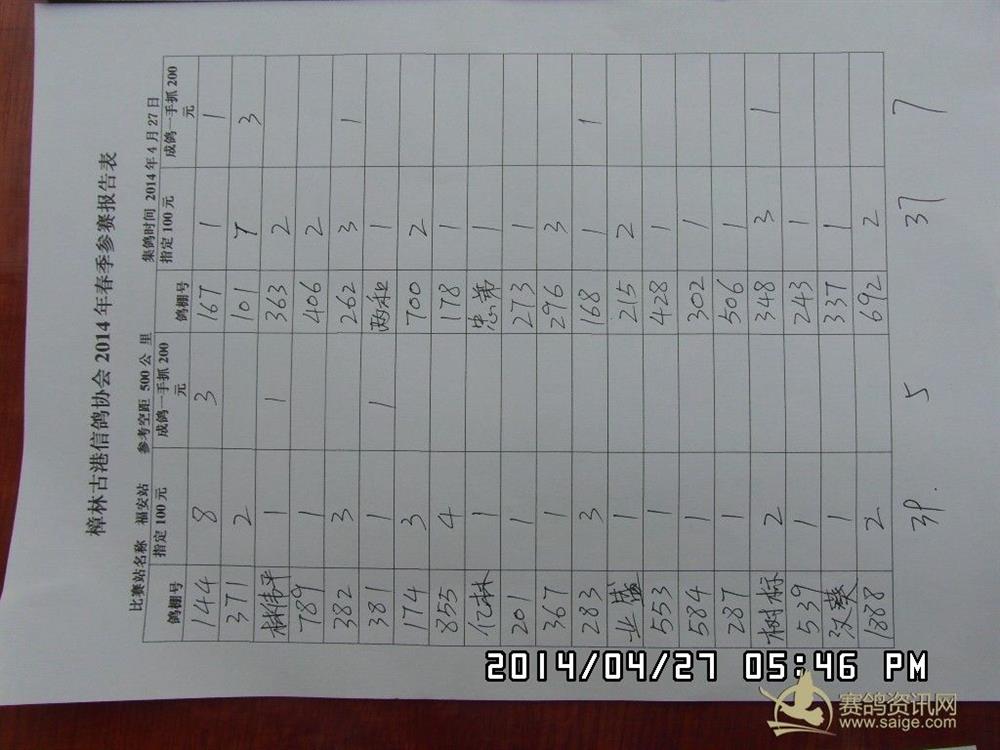 樟林古港信鸽协会2014年春季参赛报告表
比赛站名称 福安站 参考空距 500公 里 集鸽时间 2014年4月27日
鸽棚号 指定100元 成鸽一手抓200元 鸽棚号 指定100元 成鸽一手抓200元
144 8 3 167 1 1
371 2 101 7 3
林伟平 1 1 363 2
789 1 406 2
382 3 262 3 1
381 1 1 两和 1
174 3 700 2
855 4 178 1
亿林 1 忠弟 1
201 1 273 1
367 1 296 3
283 3 168 1 1
业盛 1 215 2
553 1 428 1
584 1 302 1
287 1 506 1
树标 2 348 3 1
539 1 243 1
汉葵 1 337 1
1888 2 692 2
39. 5 37 7
2014/04/27 05:46 PM
赛鸽资讯网
www.saige.com